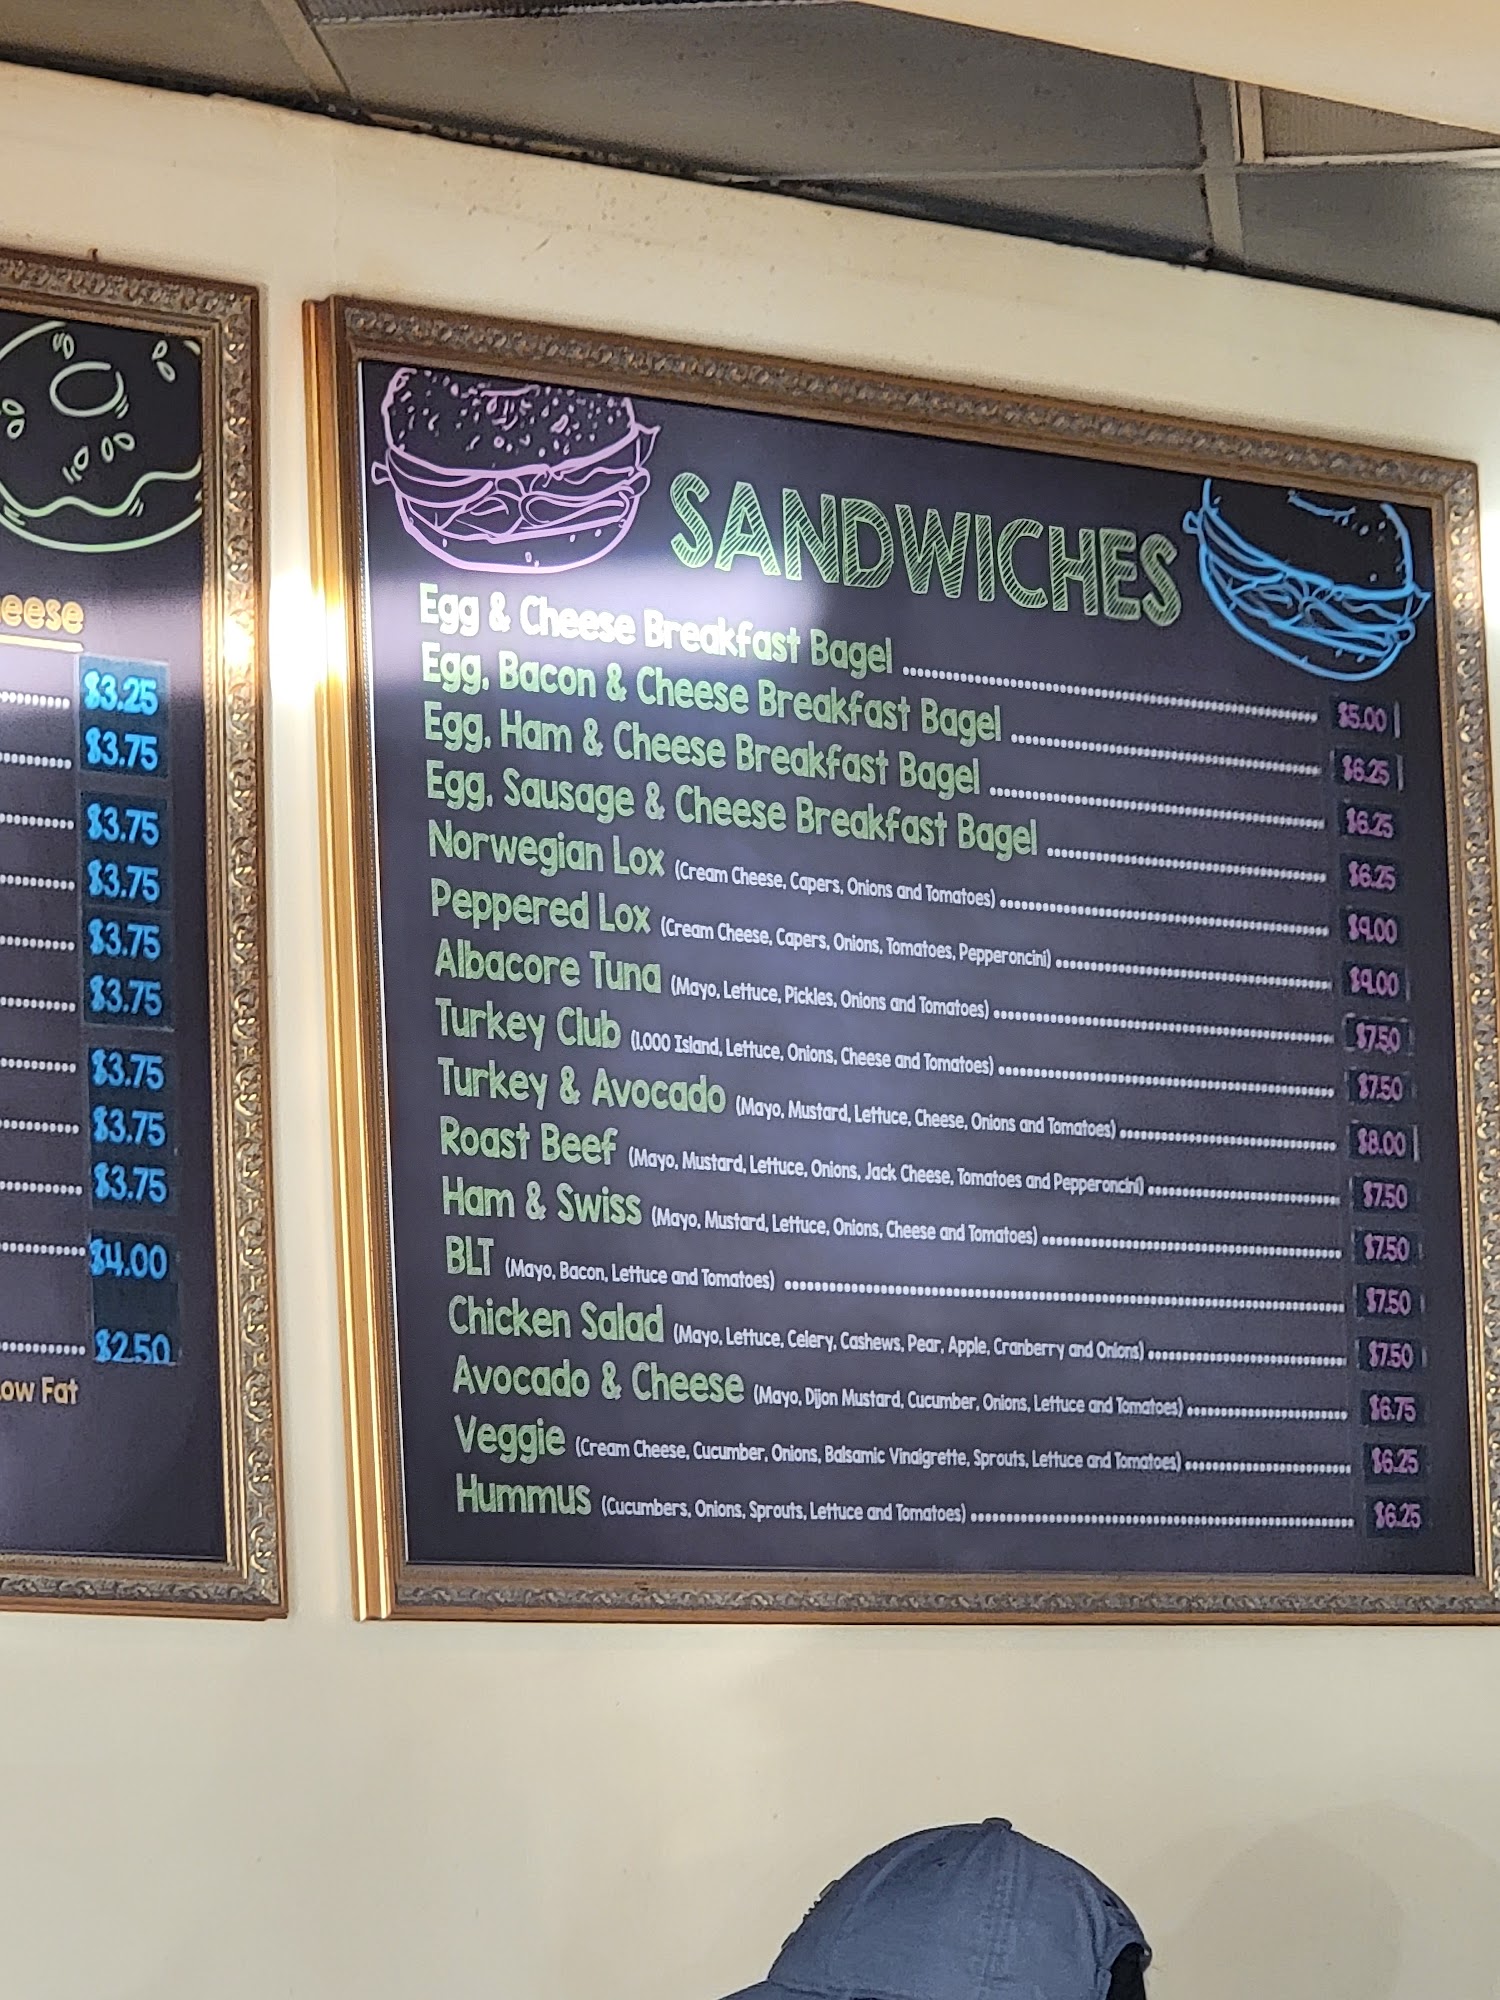 eese
$3.25
$3.75
$3.75
$3.75
$3.75
$3.75
$3.75
$3.75
$3.75
$4.00
$2.50
ow Fat
SANDWICHES
Egg & Cheese Breakfast Bagel $5.00
Egg, Bacon & Cheese Breakfast Bagel $6.25
Egg, Ham & Cheese Breakfast Bagel $6.25
Egg, Sausage & Cheese Breakfast Bagel $6.25
Norwegian Lox (Cream Cheese, Capers, Onions and Tomatoes) $9.00
Peppered Lox (Cream Cheese, Capers, Onions, Tomatoes, Pepperoncini) $9.00
Albacore Tuna (Mayo, Lettuce, Pickles, Onions and Tomatoes) $7.50
Turkey Club (1,000 Island, Lettuce, Onions, Cheese and Tomatoes) $7.50
Turkey & Avocado (Mayo, Mustard, Lettuce, Cheese, Onions and Tomatoes) $8.00
Roast Beef (Mayo, Mustard, Lettuce, Onions, Jack Cheese, Tomatoes and Pepperoncini) $7.50
Ham & Swiss (Mayo, Mustard, Lettuce, Onions, Cheese and Tomatoes) $7.50
BLT (Mayo, Bacon, Lettuce and Tomatoes) $7.50
Chicken Salad (Mayo, Lettuce, Celery, Cashews, Pear, Apple, Cranberry and Onions) $7.50
Avocado & Cheese (Mayo, Dijon Mustard, Cucumber, Onions, Lettuce and Tomatoes) $6.75
Veggie (Cream Cheese, Cucumber, Onions, Balsamic Vinaigrette, Sprouts, Lettuce and Tomatoes) $6.25
Hummus (Cucumbers, Onions, Sprouts, Lettuce and Tomatoes) $6.25